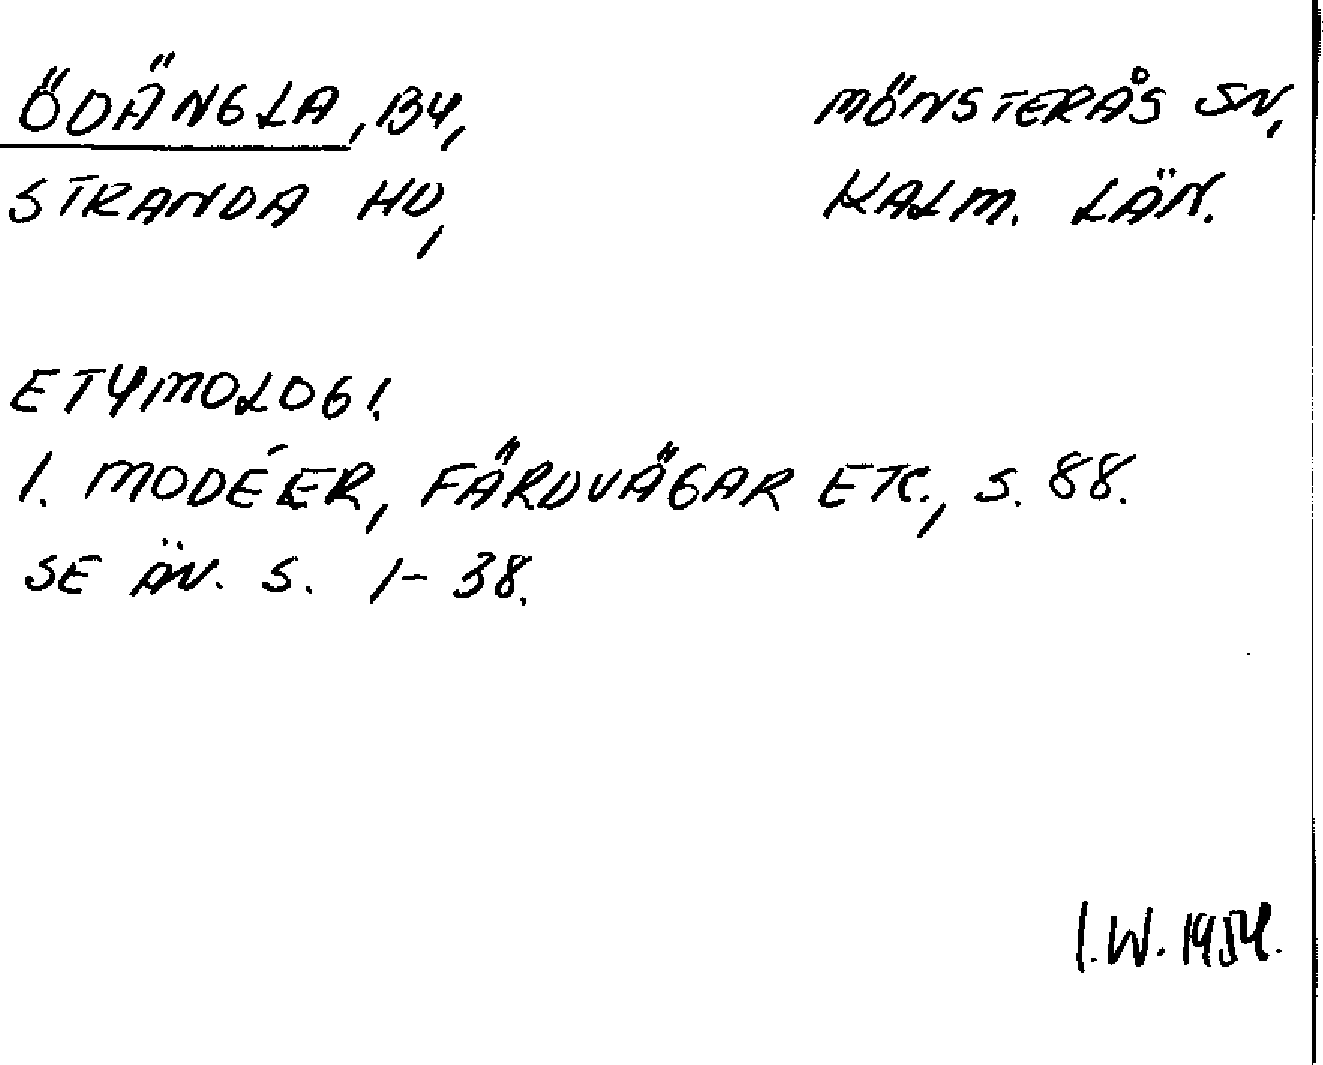 ÖDÄNGLA, BY, MÖNSTERÅS SN,
STRANDA HD, KALM. LÄN.
ETYMOLOGI.
I. MODÉER, FÄRDVÄGAR ETC., S. 88.
SE ÄV. S. 1-38.
I.W. 1954.